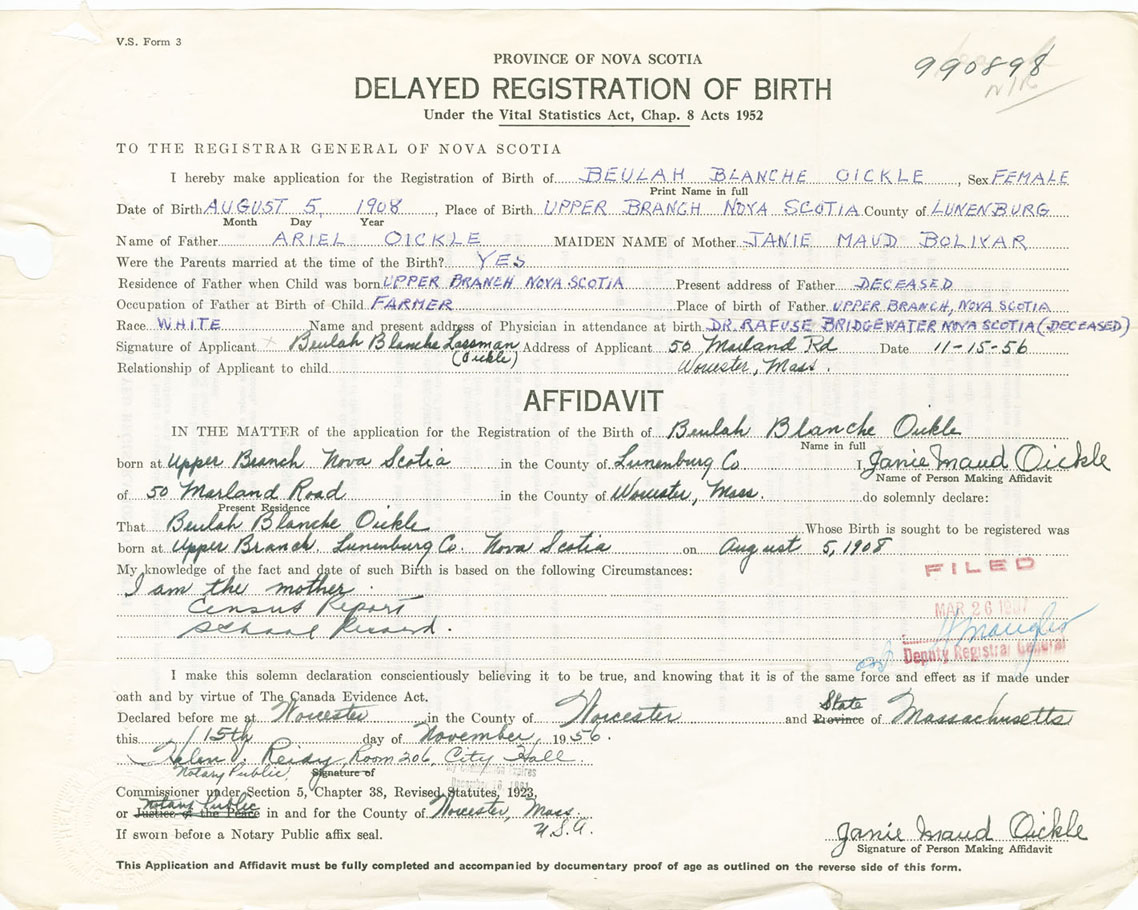 V.S. Form 3
990898
PROVINCE OF NOVA SCOTIA
NIR
DELAYED REGISTRATION OF BIRTH
Under the Vital Statistics Act, Chap. 8 Acts 1952
TO THE REGISTRAR GENERAL OF NOVA SCOTIA
I hereby make application for the Registration of Birth of BEULAH BLANCHE OICKLE, Sex FEMALE
Print Name in full
Date of Birth AUGUST 5, 1908, Place of Birth UPPER BRANCH NOVA SCOTIA County of LUNENBURG
Month Day Year
Name of Father ARIEL OICKLE MAIDEN NAME of Mother JANIE MAUD BOLIVAR
Were the Parents married at the time of the Birth? YES
Residence of Father when Child was born UPPER BRANCH NOVA SCOTIA Present address of Father DECEASED
Occupation of Father at Birth of Child FARMER Place of birth of Father UPPER BRANCH, NOVA SCOTIA
Race WHITE Name and present address of Physician in attendance at birth DR. RAFUSE BRIDGEWATER NOVA SCOTIA (DECEASED)
Signature of Applicant x Beulah Blanche Lassman Address of Applicant 50 Marland Rd Date 11-15-56
(Oickle)
Relationship of Applicant to child Worcester, Mass.
AFFIDAVIT
IN THE MATTER of the application for the Registration of the Birth of Beulah Blanche Oickle
Name in full
born at Upper Branch Nova Scotia in the County of Lunenburg Co. I, Janie Maud Oickle
Name of Person Making Affidavit
of 50 Marland Road in the County of Worcester, Mass. do solemnly declare:
Present Residence
That Beulah Blanche Oickle Whose Birth is sought to be registered was
born at Upper Branch. Lunenburg Co. Nova Scotia on August 5, 1908
My knowledge of the fact and date of such Birth is based on the following Circumstances:
FILED
I am the mother.
Census Report
MAR 26 1957
School Record.
Deputy Registrar General
I make this solemn declaration conscientiously believing it to be true, and knowing that it is of the same force and effect as if made under
oath and by virtue of The Canada Evidence Act.
State
Declared before me at Worcester in the County of Worcester and Province of Massachusetts
this 15th day of November, 1956.
Helen J. Reidy, Room 206, City Hall.
Notary Public. Signature of
Commissioner under Section 5, Chapter 38, Revised Statutes, 1923,
Notary Public
or Justice of the Peace in and for the County of Worcester, Mass.
U.S.A.
If sworn before a Notary Public affix seal.
Janie Maud Oickle
Signature of Person Making Affidavit
This Application and Affidavit must be fully completed and accompanied by documentary proof of age as outlined on the reverse side of this form.